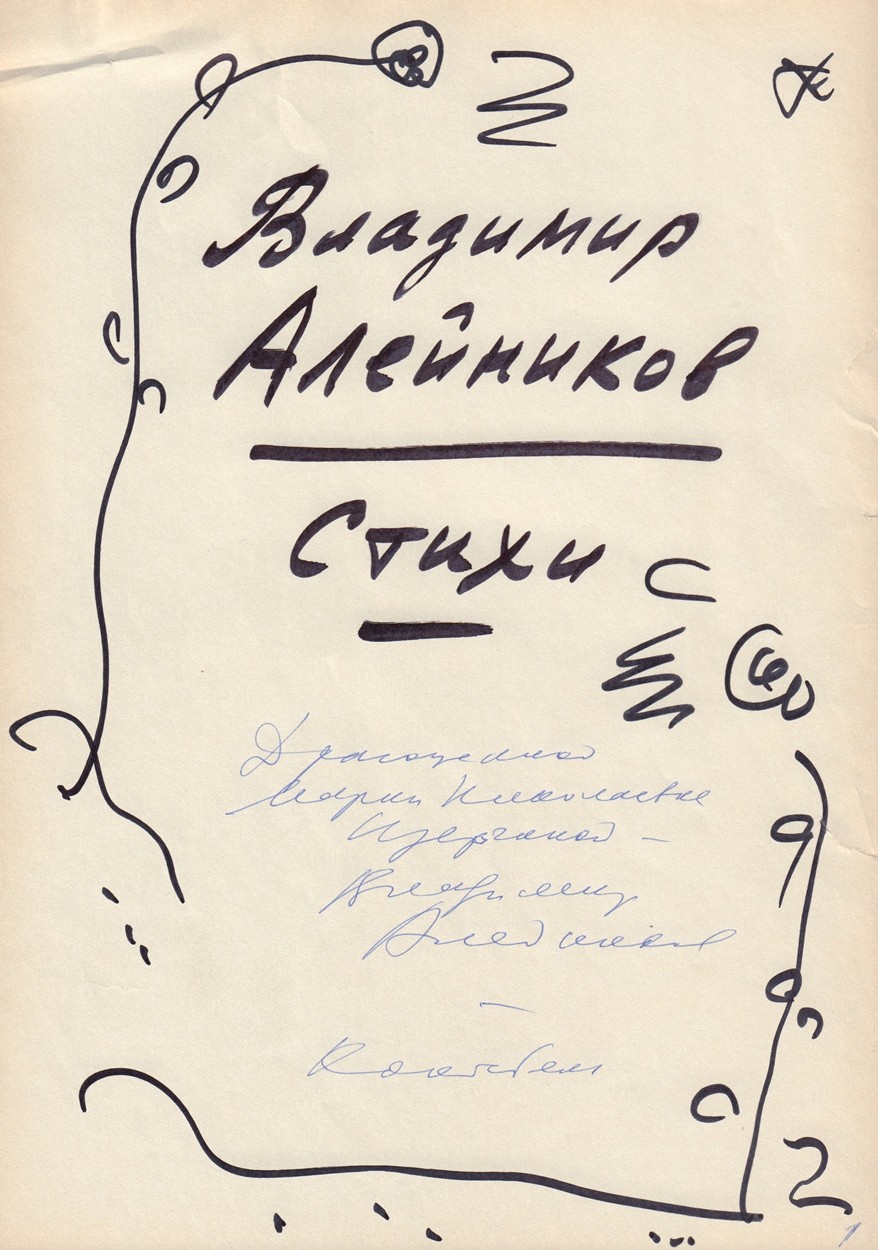 Владимир
Алейников
Стихи
Драгоценной
Марии Николаевне
Изергиной —
Владимир
Алейников
—
Коктебель
1